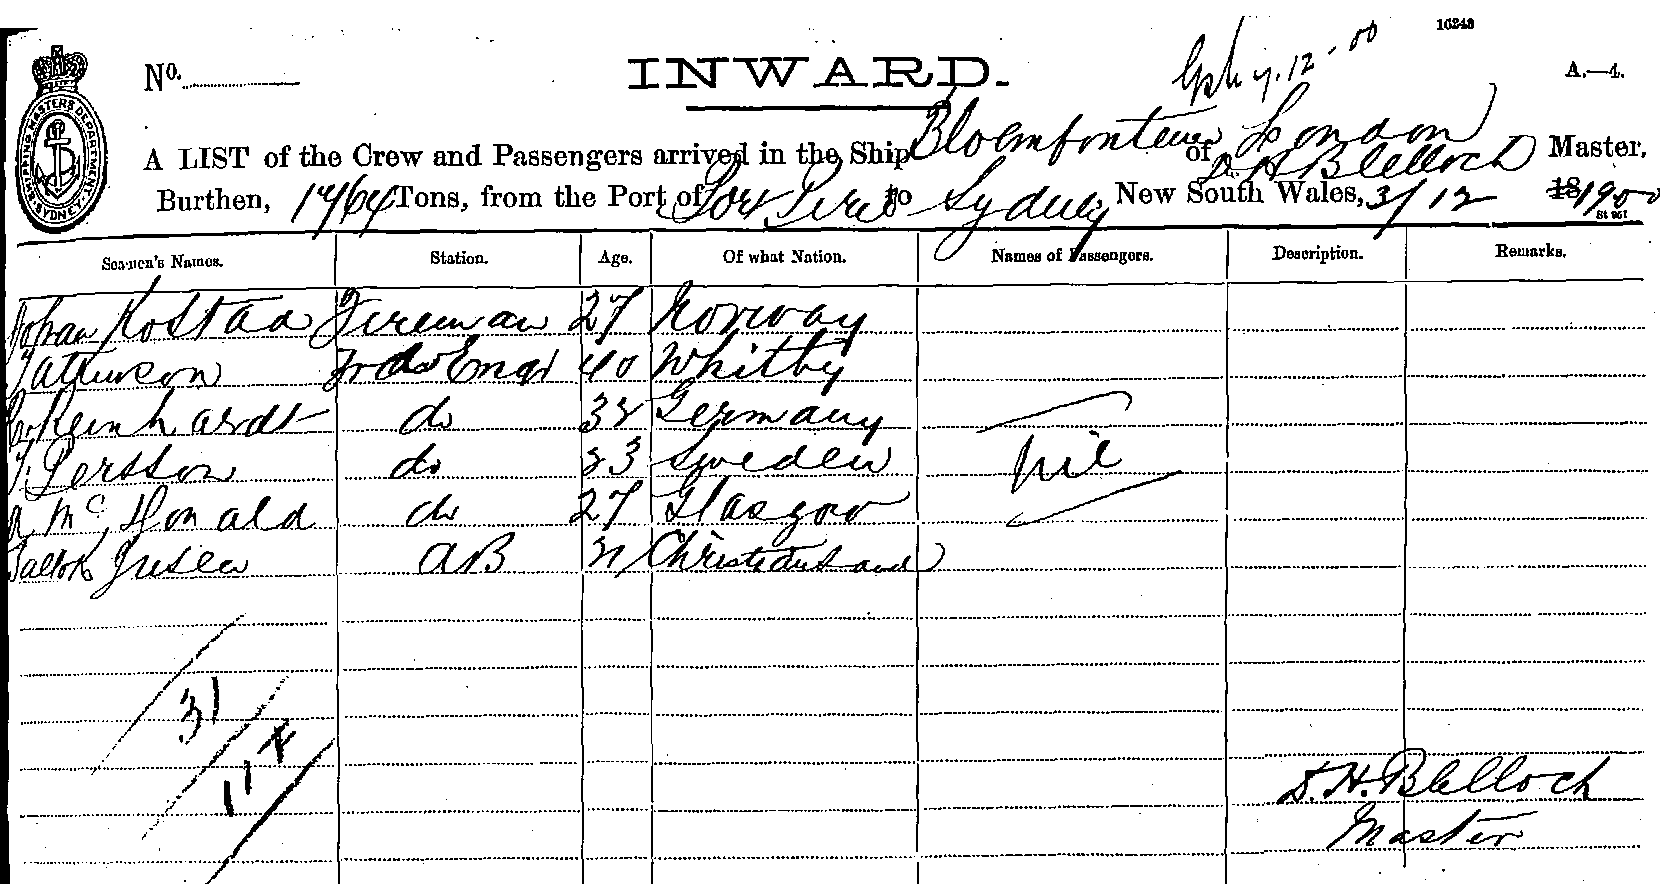 10243
7.12-00
No.
INWARD.
A.—4.
SHIPPING MASTER'S DEPARTMENT SYDNEY.
A LIST of the Crew and Passengers arrived in the Ship Bloemfontein of London D. H. Blelloch Master,
Burthen, 1764 Tons, from the Port of Port Pirie to Sydney, New South Wales, 3/12 18 1900
St 951
Seamen's Names. Station. Age. Of what Nation. Names of Passengers. Description. Remarks.
Johan Kostad Fireman 27 Norway
Patterson Engr 40 Whitby
Reinhardt do 32 Germany
Persson do 23 Sweden
A McDonald do 27 Glasgow
AB Christiansand
nil
31
117
D. H. Blelloch
Master